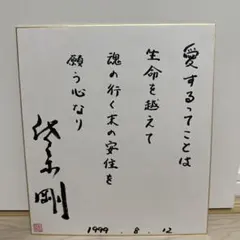 愛するってことは
生命を越えて
魂の行く末の安住を
願う心なり
代々木 剛
1999.8.12